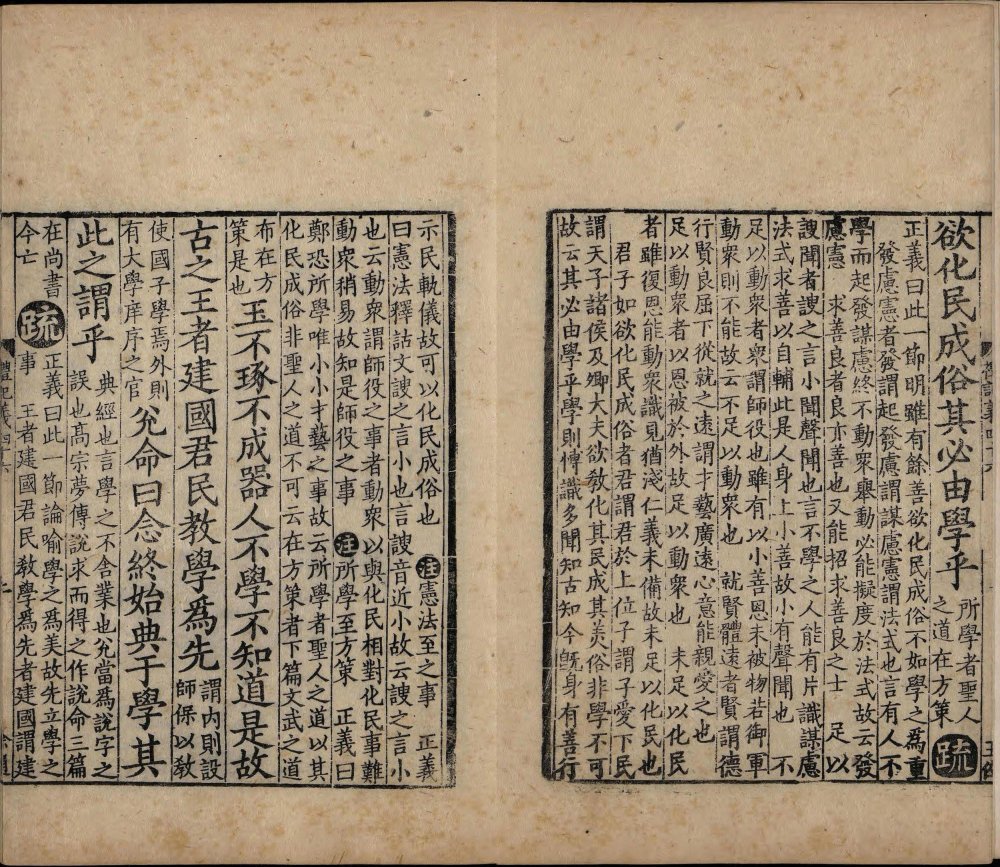 欲化民成俗其必由學乎
所學者聖人
之道在方策
疏
正義曰此一節明雖有餘善欲化民成俗不如學之爲重
發慮憲者發謂起發慮謂謀慮憲謂法式也言有人不
學而起發謀慮終不動衆舉動必能擬度於法式故云發
慮憲　求善良者良亦善也又能招求善良之士　足以
謏聞者謏之言小聞聲聞也言不學之人能有片識謀慮
法式求善以自輔此是人身上小善故小有聲聞也　不
足以動衆者衆謂師役也雖有以小善恩未被物若御軍
動衆則不能故云不足以動衆也　就賢體遠者賢謂德
行賢良屈下從就之遠謂才藝廣遠心意能親愛之也
足以動衆者以恩被於外故足以動衆也　未足以化民
者雖復恩能動衆識見猶淺仁義未備故未足以化民也
君子如欲化民成俗者君謂君於上位子謂子愛下民
謂天子諸侯及卿大夫欲教化其民成其美俗非學不可
故云其必由學乎學則博識多聞知古知今旣身有善行
示民軌儀故可以化民成俗也　注憲法至之事　正義
曰憲法釋詁文謏之言小也言謏音近小故云謏之言小
也云動衆謂師役之事者動衆以與化民相對化民事難
動衆稍易故知是師役之事　注所學至方策　正義曰
鄭恐所學唯小小才藝之事故云所學者聖人之道以其
化民成俗非聖人之道不可云在方策者下篇文武之道
布在方
策是也
玉不琢不成器人不學不知道是故
古之王者建國君民教學爲先
謂内則設
師保以教
使國子學焉外則
有大學庠序之官
兊命曰念終始典于學其
此之謂乎
典經也言學之不舍業也兊當爲說字之
誤也高宗夢傅說求而得之作說命三篇
在尚書
今亡
疏
正義曰此一節論喻學之爲美故先立學之
事　王者建國君民教學爲先者建國謂建
禮記義四十六